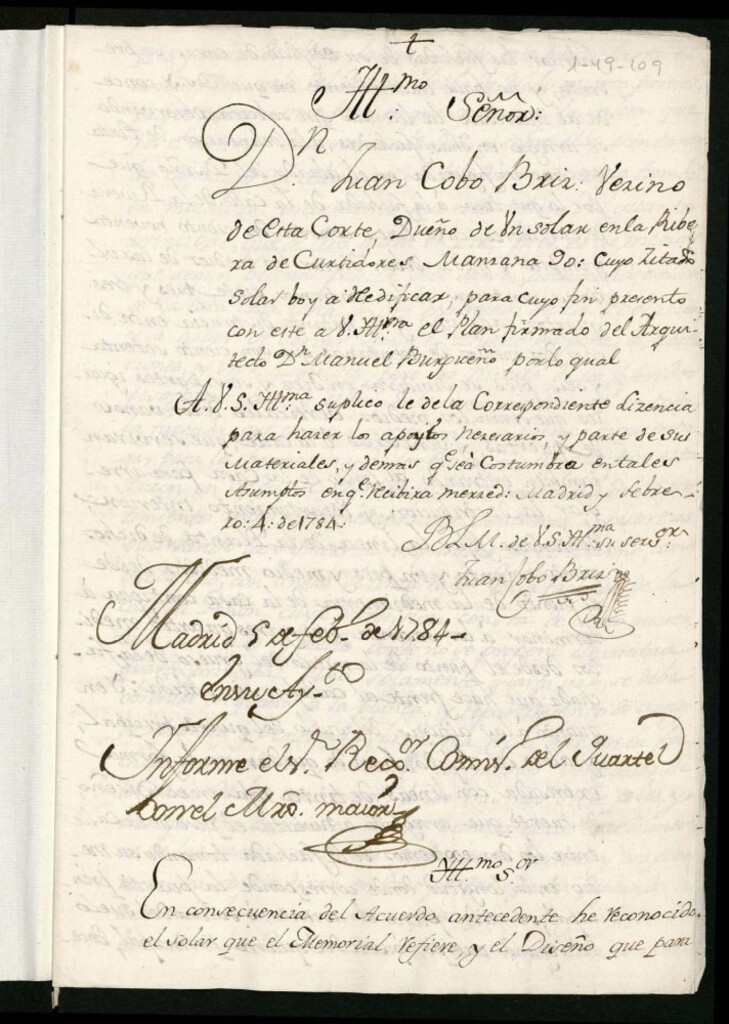 +
1-49-109
Yll.mo Señor:
Dn. Juan Cobo Brix: Vezino
de esta Corte, Dueño de Un solar en la Ribe
ra de Curtidores Manzana 90: Cuyo Zitado
Solar boy a Hedificar, para cuyo fin presento
con este a V. Yll.ma el Plan firmado del Arqui-
tecto Dn. Manuel
por lo qual
A. V. S. Yll.ma suplico le de la Correspondiente Lizencia
para hazer los apoytos nezesarios, y parte de sus
Materiales, y demas qe. sea Costumbra en tales
Asumptos en qe. Rezibira merzed: Madrid y febre-
ro: 4: de 1784:
B.L.M. de V.S. Yll.ma su seror.
Juan Cobo Brix
Madrid 5 de febo. de 1784-
En su Ay.to
Informe el Sr. Rexor. Comiso. del Quartel
con el Mro. maior
Yll.mo Sor.
En consecuencia del Acuerdo antecedente he reconocido
el solar que el Memorial refiere, y el Diseño que para